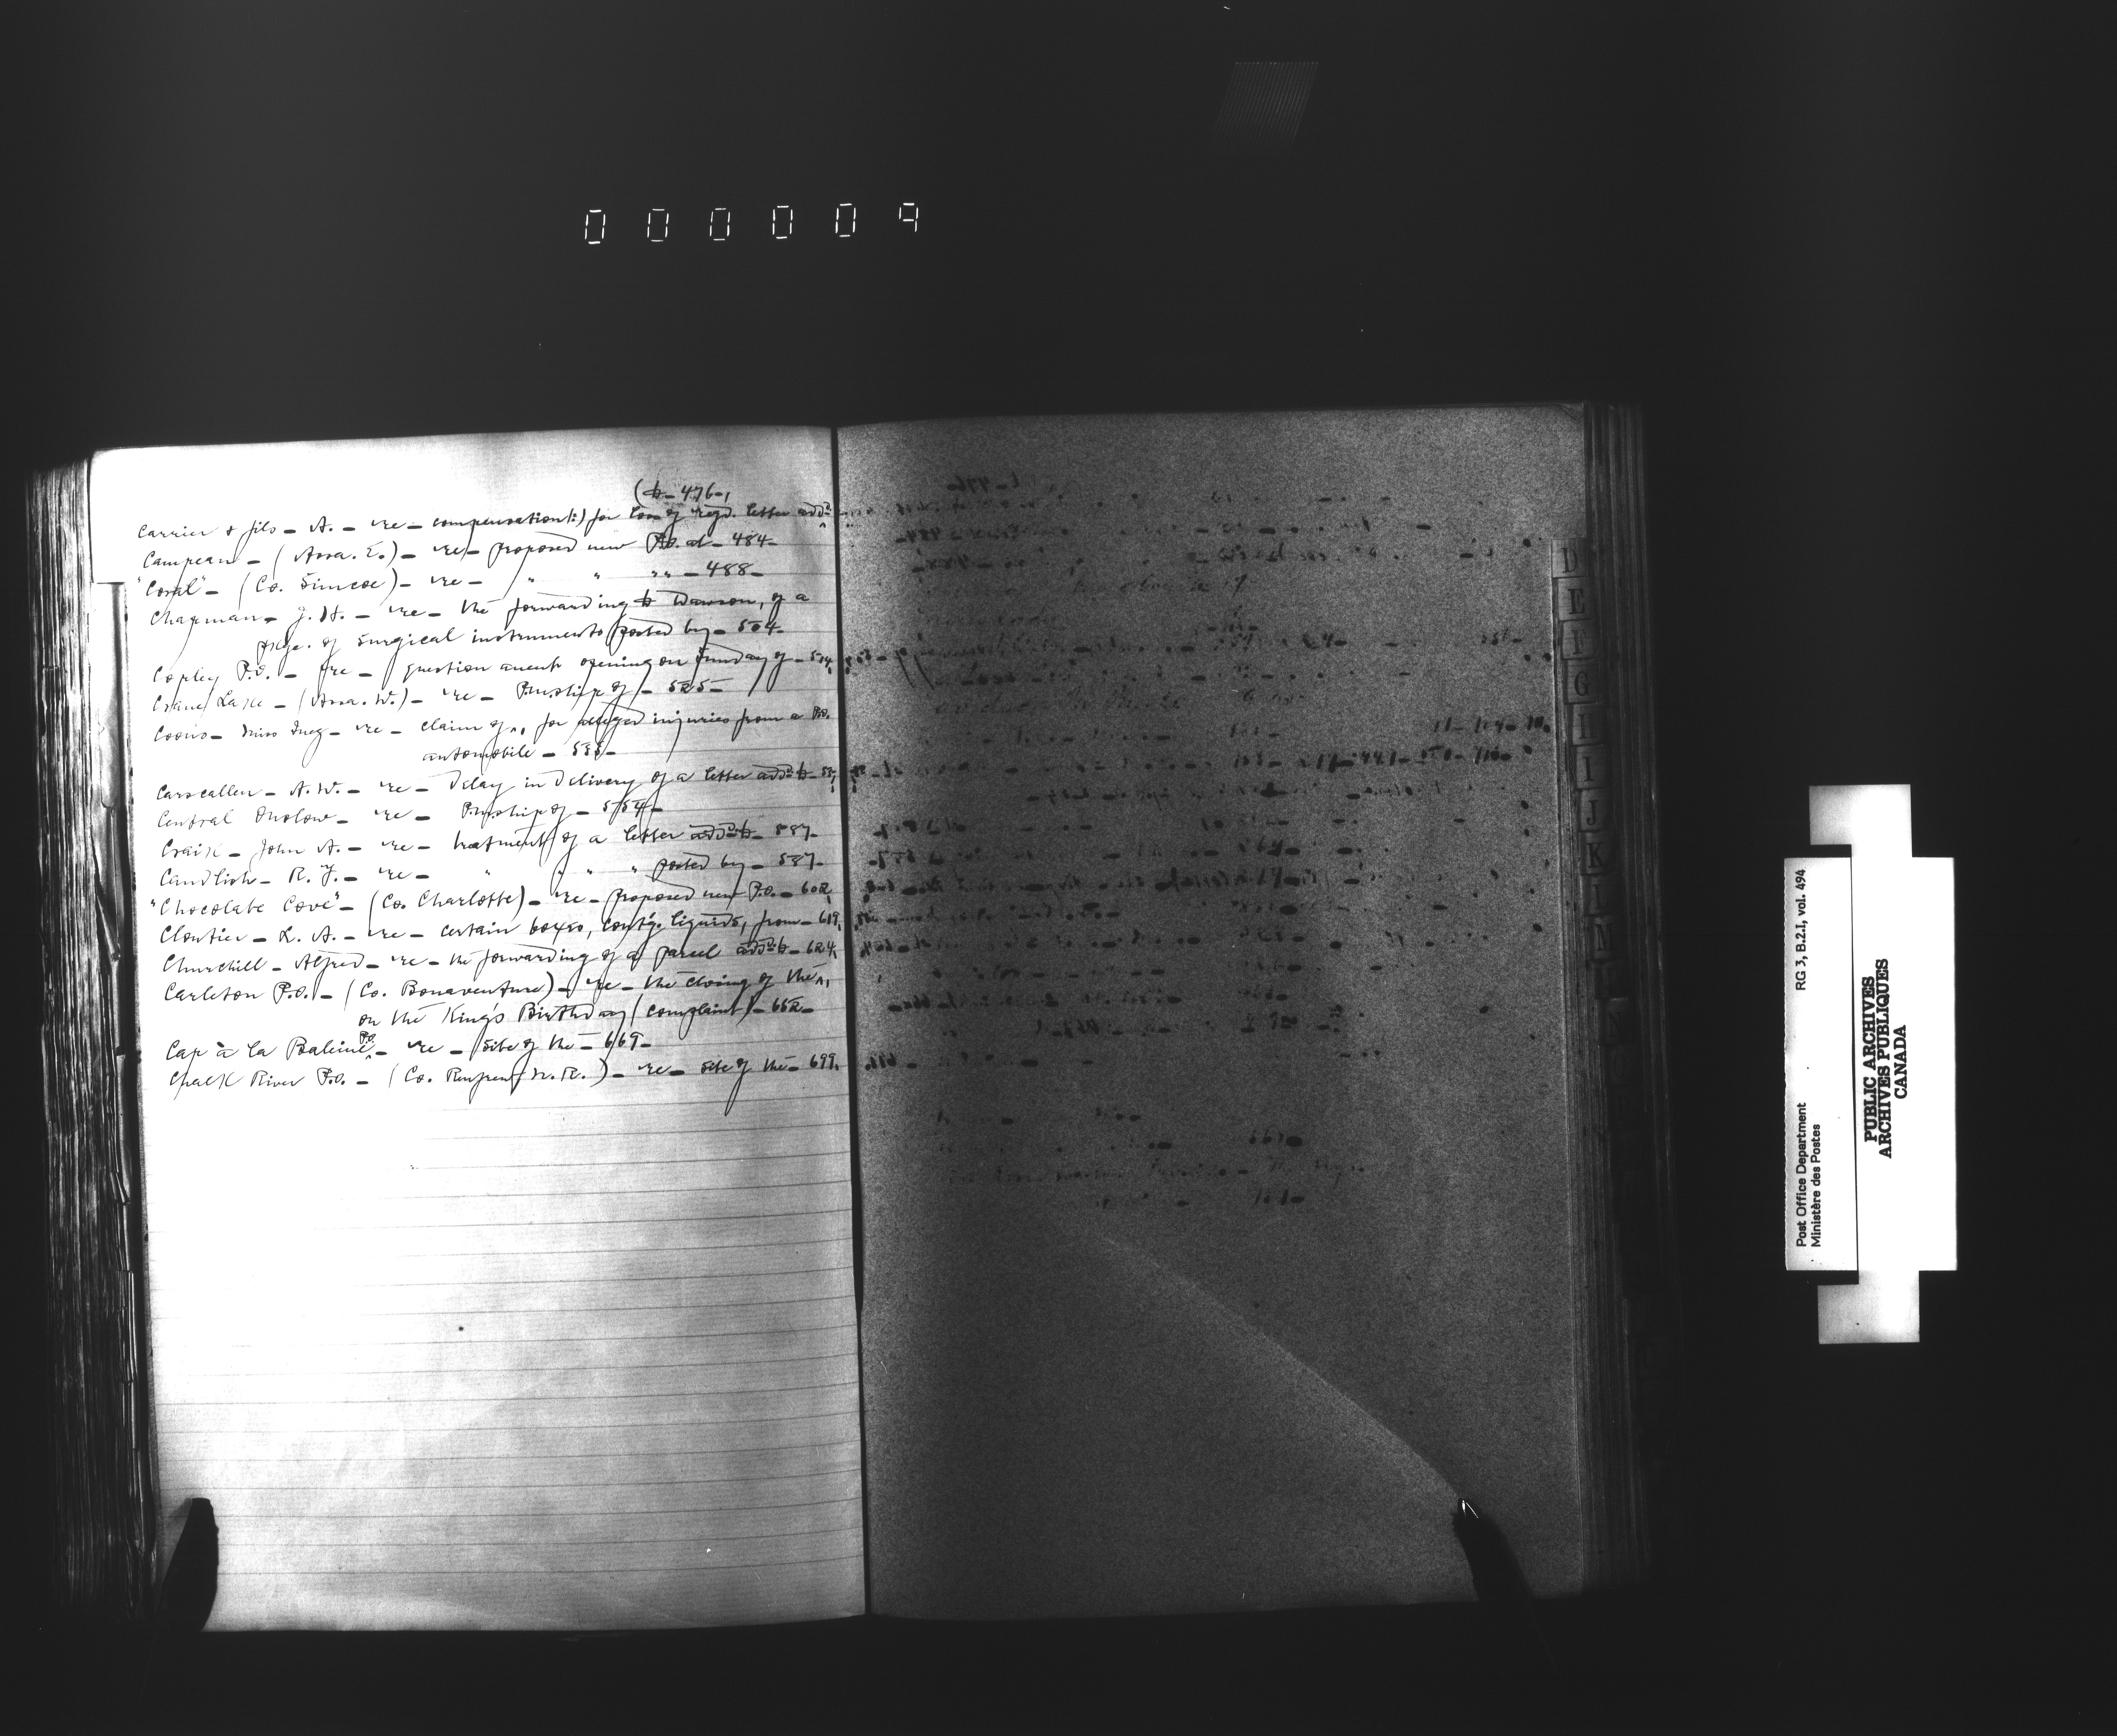 000009
(to - 476 -
Carrier & fils - A. - re - compensation(:) for loss of regd. letter addd.
Campeau - (Assa. E.) - re - proposed new P.O. at - 484 -
"Coral" - (Co. Simcoe) - re - " " " " - 488 -
Chapman - J. H. - re - the forwarding to Dawson, of a
pkge. of surgical instruments posted by - 504 -
Copley P.O. - re - question anent opening on Sunday of - 514
Crane Lake - (Assa. W.) - re - P.M.ship of - 525 -
Coons - Miss Inez - re - claim of, for alleged injuries from a P.O.
automobile - 535 -
Carscallen - A. W. - re - Delay in delivery of a letter addd. to -
Central Onslow - re - P.M.ship of - 554 -
Craik - John A. - re - treatment of a letter addd. to - 587 -
Candlish - R. J. - re - " " " " posted by - 587 -
"Chocolate Cove" - (Co. Charlotte) - re - proposed new P.O. - 602
Cloutier - L. A. - re - certain boxes, contg. liquids, from - 619
Churchill - Alfred - re - the forwarding of a parcel addd. to - 624
Carleton P.O. - (Co. Bonaventure) - re - the closing of the,
on the King's Birthday (complaint) - 652 -
Cap à la Baleine P.O. - re - site of the - 669 -
Chalk River P.O. - (Co. Renfrew N.R.) - re - site of the - 699
D
E
F
G
H
I
J
K
L
M
N
Post Office Department
Ministère des Postes
RG 3, B.2.I, vol. 494
PUBLIC ARCHIVES
ARCHIVES PUBLIQUES
CANADA